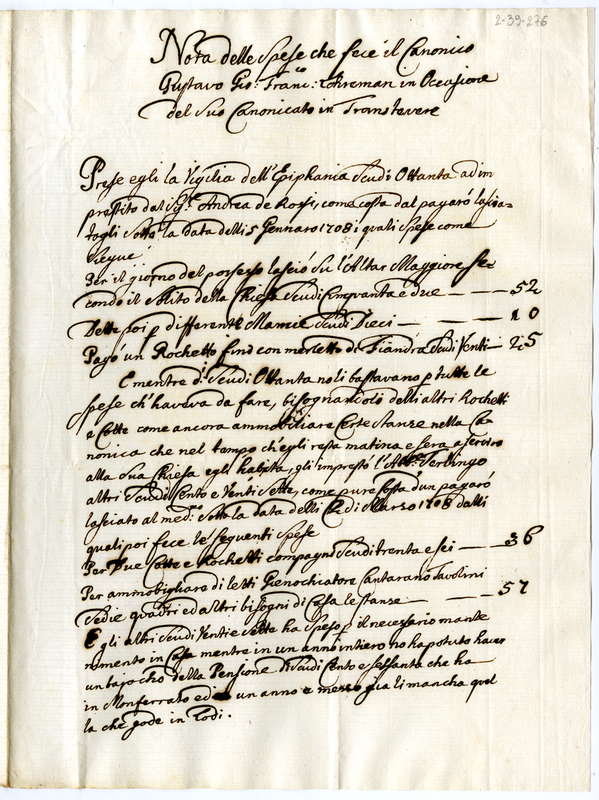 2-39-276
Nota delle Spese che fece il Canonico
Gustavo Gio: Franc:co in Occasione
del Suo Canonicato in Transtevere
Prese egli la Vigilia dell'Epiphania Scudi Ottanta ad im
prestito dal Sig.r Andrea de Rossi, come costa dal pagarò lascia=
togli sotto la data delli 5 Gennaro 1708 i quali spese come
siegue
Per il giorno del possesso lasciò su l'Altar Maggiore se=
condo il solito della Chiesa Scudi Cinquanta e due — — 52
Dette poi p differenti Mancie Scudi Dieci — — 10
Pagò un Rochetto fino con merletto di Fiandra Scudi Venti — 25
E mentre d.i Scudi Ottanta no li bastavano p tutte le
spese ch'haveva da fare, bisognandoli delli altri Rochetti
e Cotte come ancora ammobiliare Certe stanze nella Ca=
nonica che nel tempo ch'egli resta matina e sera a servitio
alla sua Chiesa egli habita, gli imprestò l'Abb.e Terlingo
altri Scudi Cento e Venti Sette, come pure costa d'un pagarò
lasciato al med:mo sotto la data delli di Marzo 1708 dalli
quali poi fece le seguenti spese
Per Due Cotte e Rochetti compagni Scudi trenta e sei — 36
Per ammobigliare di letti Genochiatore Cantarano Tavolini
Sedie quadri ed altri bisogni di Casa le stanze — — 57
E gli altri Scudi Venti e Sette ha speso p il necessario mante
nimento in Casa mentre in un anno intiero no ha potuto haver
un bajocho della Pensione di Scudi Cento e sessanta che ha
in Monferrato ed un anno e mezzo già li mancha quel
la che gode in Lodi.